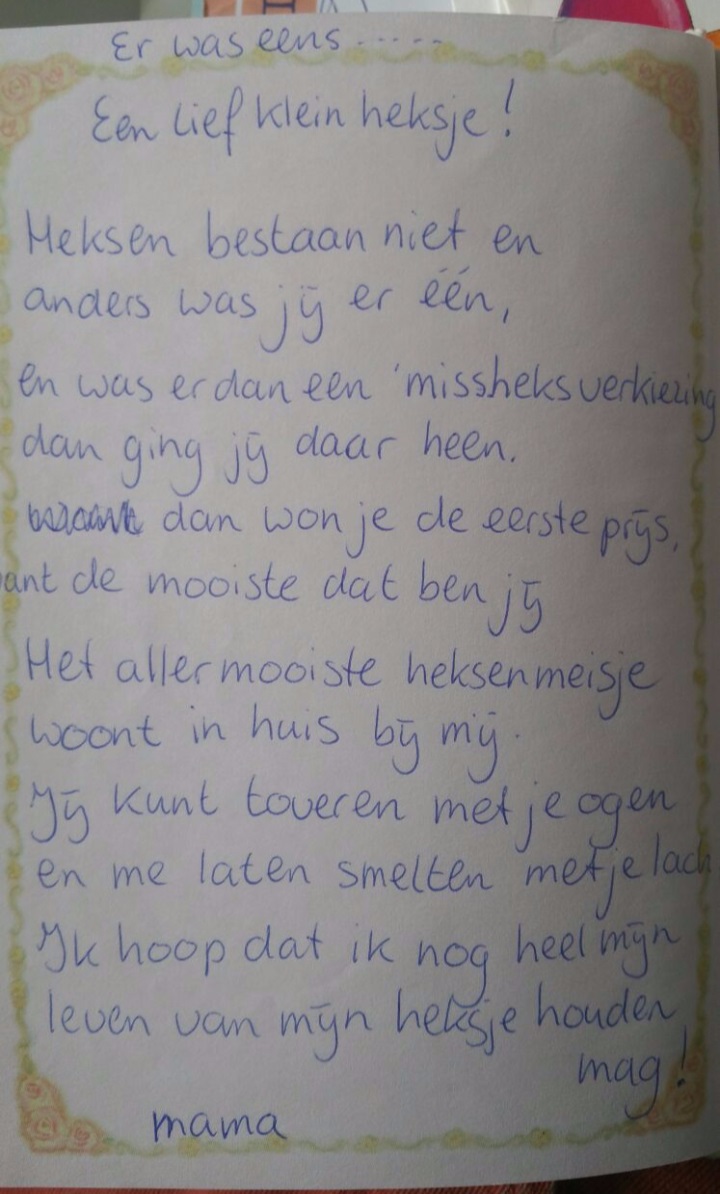 Er was eens.....
Een lief klein heksje!
Heksen bestaan niet en
anders was jij er één,
en was er dan een 'missheksverkiezing
dan ging jij daar heen.
dan won je de eerste prijs,
want de mooiste dat ben jij
Het allermooiste heksenmeisje
woont in huis bij mij.
Jij kunt toveren met je ogen
en me laten smelten met je lach
Ik hoop dat ik nog heel mijn
leven van mijn heksje houden
mag!
mama